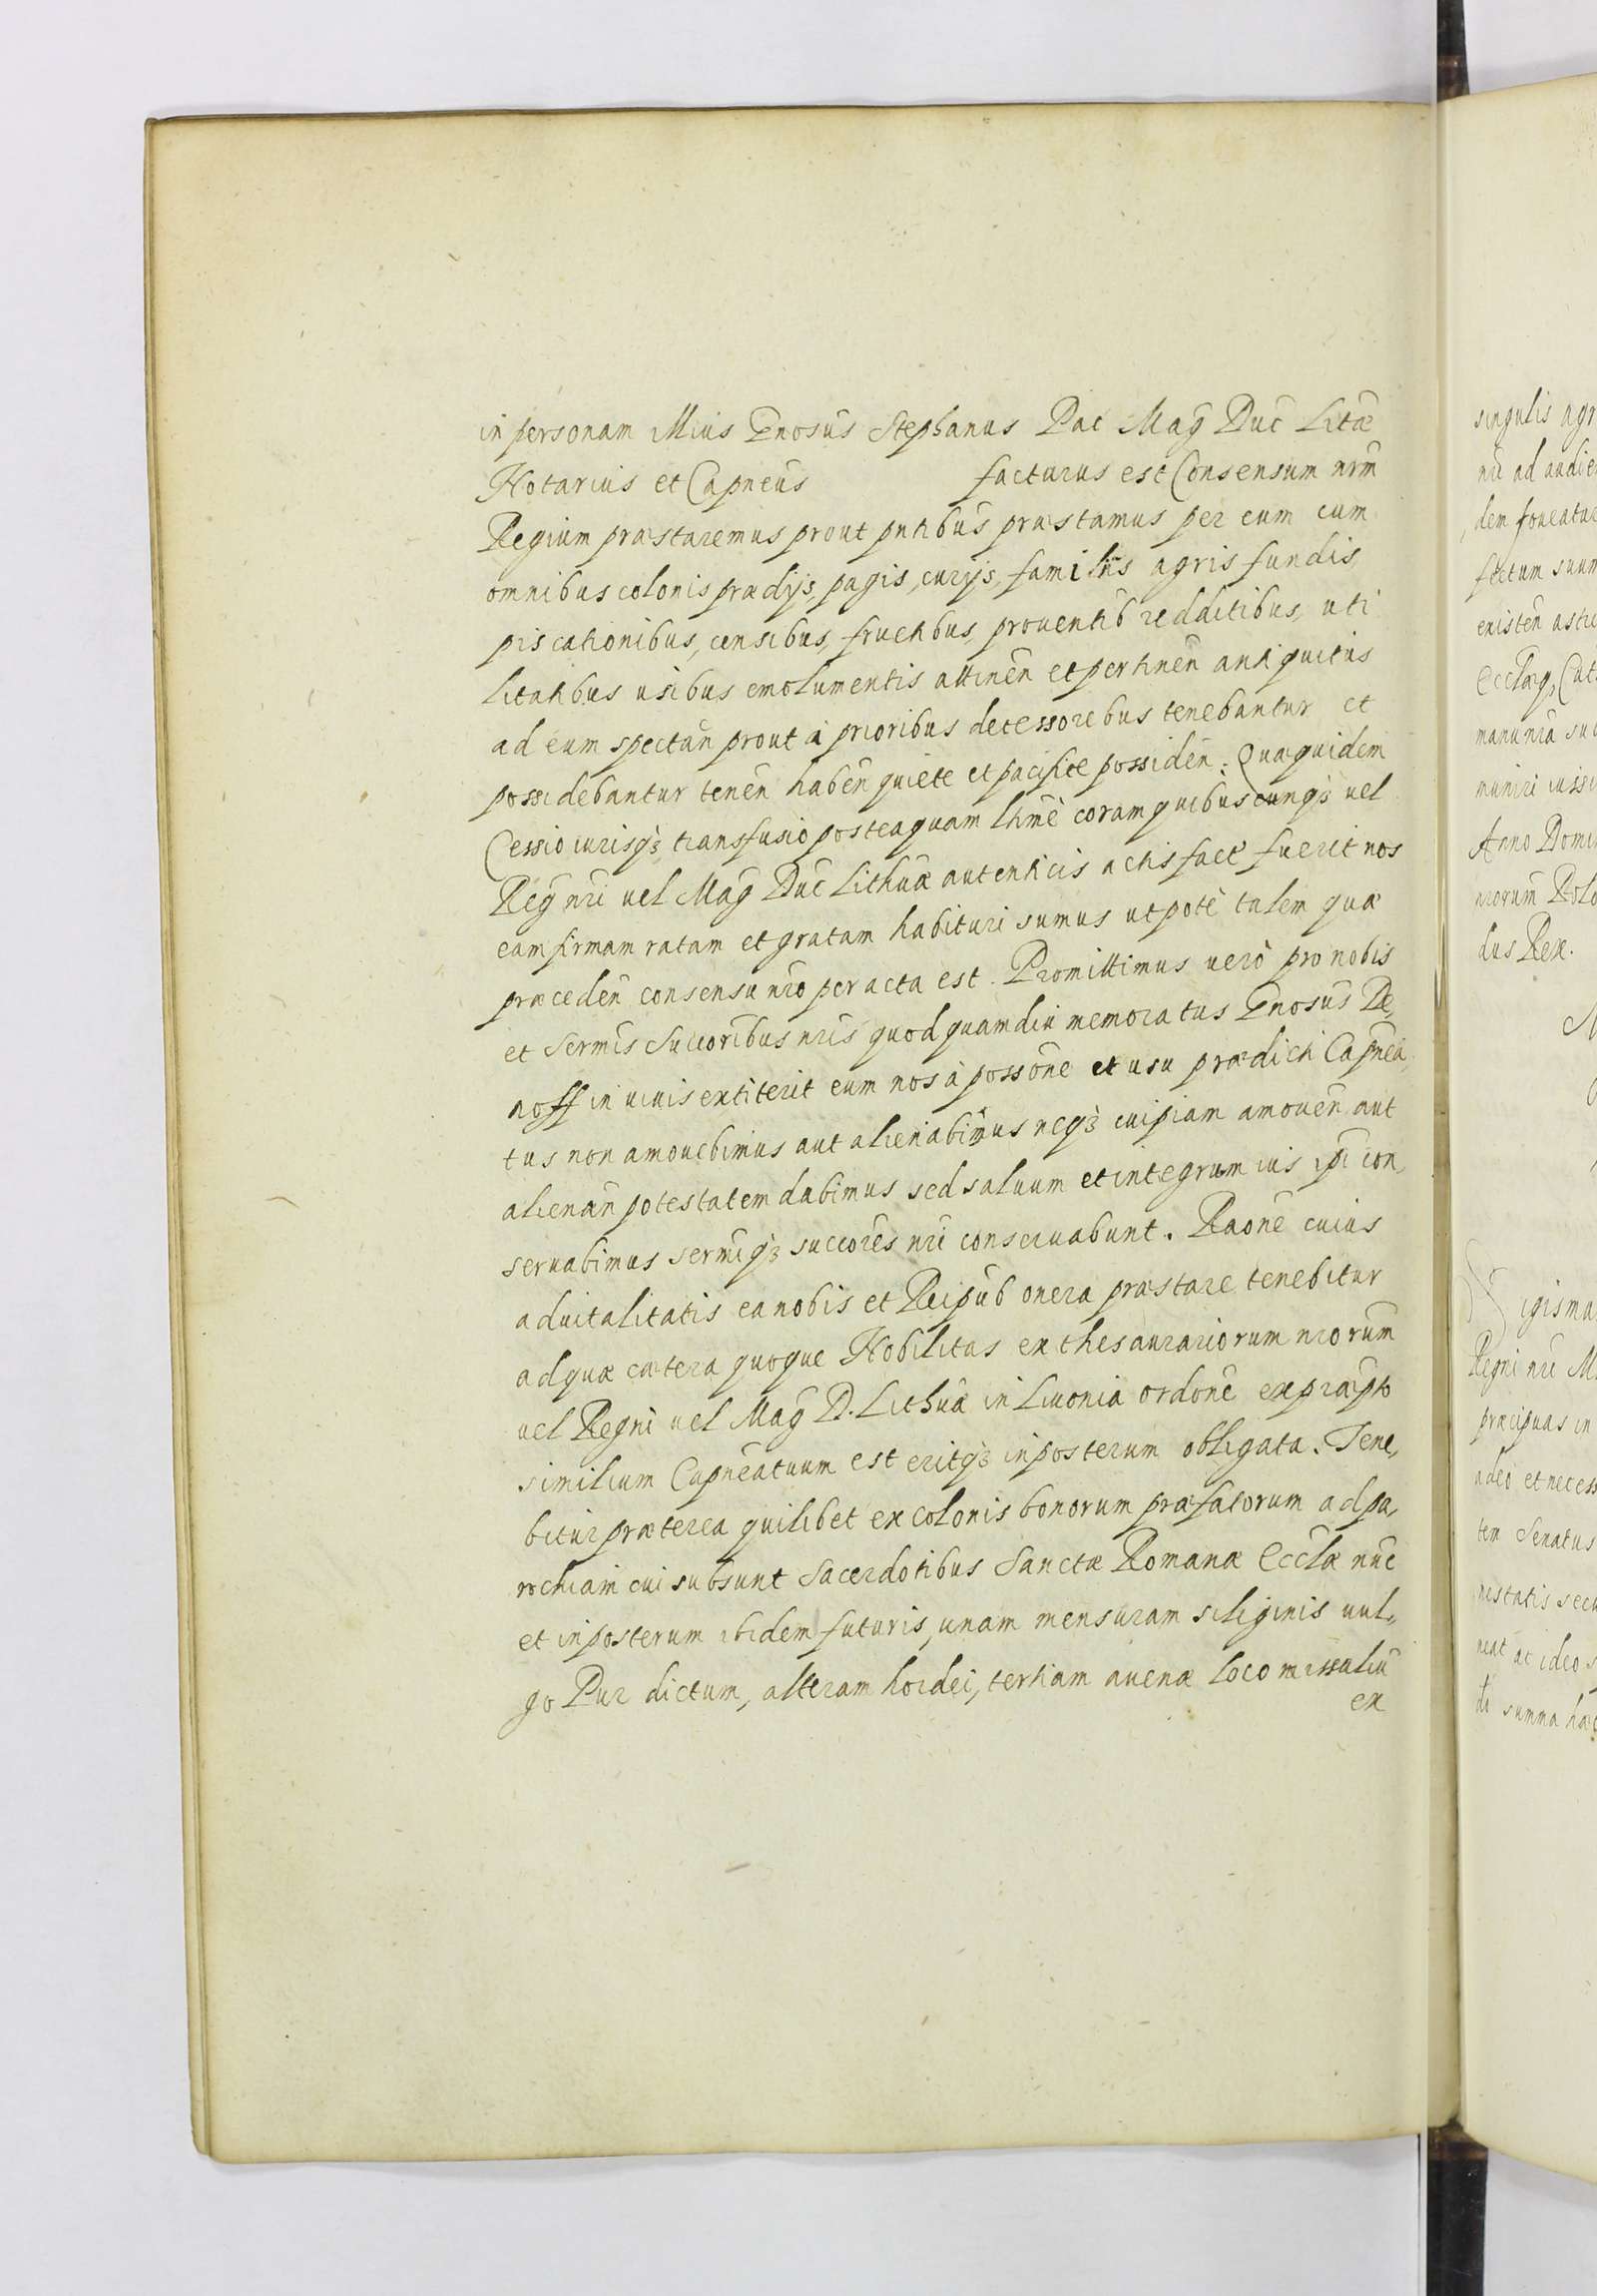 in personam illius Gnosus Stephanus Pac Mag Duc Litæ
Notarius et Capneus facturus est Consensum nrm
Regium præstaremus prout pntibus præstamus per eum cum
omnibus colonis prædijs, pagis, curijs, familiis agris fundis,
piscationibus, censibus, fructibus, prouentib redditibus, uti
litatibus usibus emolumentis attinen et pertinen antiquitus
ad eum spectan prout à prioribus decessoribus tenebantur et
possidebantur tenen haben quiete et pacifice possiden: Quæ quidem
Cessio iurisqꝫ transfusio posteaquam lhmè coram quibuscunqꝫ vel
Reg nri vel Mag Duc Lithuæ autenticis actis fact fuerit nos
eam firmam ratam et gratam habituri sumus utpotè talem quæ
præceden consensu nro peracta est. Promittimus verò pro nobis
et Sermis Succoribus nris quod quamdiu memoratus Gnosus De,
noff in vivis extiterit eum nos à possone et usu prædicti Capnea,
tus non amovebimus aut alienabimus neqꝫ cuipiam amoven aut
alienan potestatem dabimus sed salvum et integrum ius ipi con,
servabimus sermiqꝫ succores nri conservabunt. Raone cuius
aduitalitatis ea nobis et Reipub onera præstare tenebitur
ad quæ cætera quoque Nobilitas ex thesaurariorum nrorum
vel Regni vel Mag D. Lithuæ in Livonia ordone ex præpto
similium Capneatuum est eritqꝫ in posterum obligata. Tene,
bitur præterea quilibet ex colonis bonorum præfatorum ad pa,
rochiam cui subsunt Sacerdotibus Sanctæ Romanæ Ecclæ nuc
et in posterum ibidem futuris, unam mensuram siliginis vul,
go Pur dictum, alteram hordei, tertiam avenæ loco missaliu
ex
singulis agr
nri ad audie
dem foveatur
fectum suum
existen
manu nra su
muniri iussi
Anno Domi
nrorum Polo
dus Rex.
igisma
Regni nri M
præcipuas in
adeò et necess
tem Senatus
nestatis secu
neat ac ideo s
summa hac